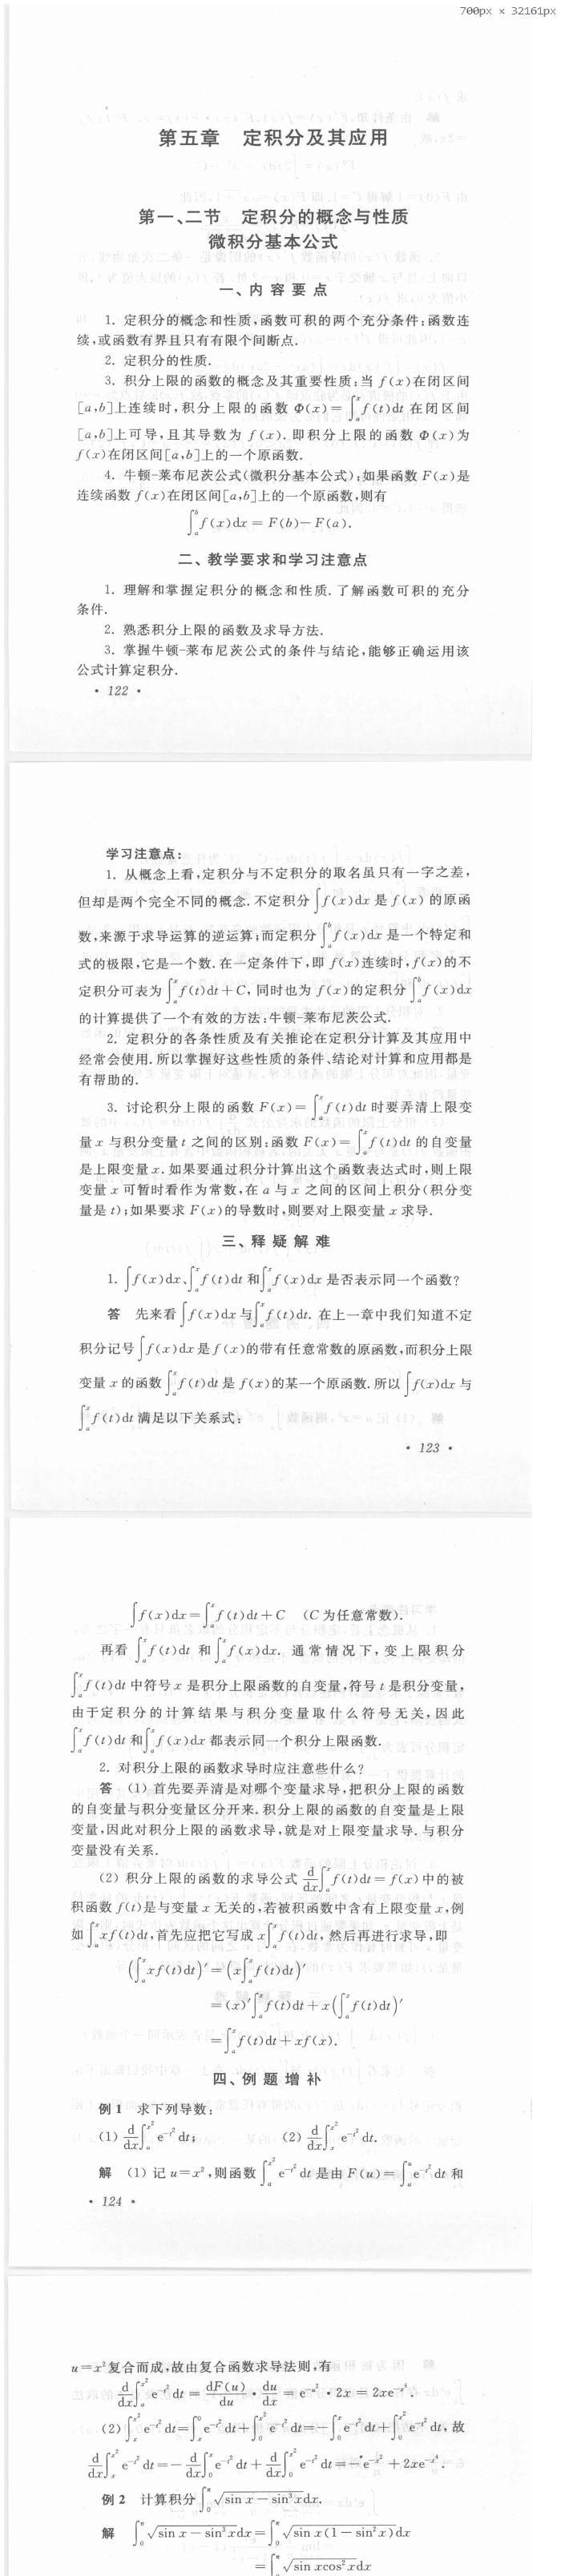 700px × 32161px
第五章 定积分及其应用
第一、二节 定积分的概念与性质
微积分基本公式
一、内容要点
1. 定积分的概念和性质,函数可积的两个充分条件:函数连
续,或函数有界且只有有限个间断点.
2. 定积分的性质.
3. 积分上限的函数的概念及其重要性质:当 f(x)在闭区间
[a,b]上连续时,积分上限的函数 Φ(x)=∫_a^x f(t)dt 在闭区间
[a,b]上可导,且其导数为 f(x). 即积分上限的函数 Φ(x)为
f(x)在闭区间[a,b]上的一个原函数.
4. 牛顿-莱布尼茨公式(微积分基本公式):如果函数 F(x)是
连续函数 f(x)在闭区间[a,b]上的一个原函数,则有
∫_a^b f(x)dx = F(b)−F(a).
二、教学要求和学习注意点
1. 理解和掌握定积分的概念和性质. 了解函数可积的充分
条件.
2. 熟悉积分上限的函数及求导方法.
3. 掌握牛顿-莱布尼茨公式的条件与结论,能够正确运用该
公式计算定积分.
• 122 •
学习注意点:
1. 从概念上看,定积分与不定积分的取名虽只有一字之差,
但却是两个完全不同的概念. 不定积分∫f(x)dx 是 f(x) 的原函
数,来源于求导运算的逆运算;而定积分∫_a^b f(x)dx 是一个特定和
式的极限,它是一个数. 在一定条件下,即 f(x)连续时,f(x)的不
定积分可表为∫_a^x f(t)dt+C, 同时也为 f(x)的定积分∫_a^b f(x)dx
的计算提供了一个有效的方法:牛顿-莱布尼茨公式.
2. 定积分的各条性质及有关推论在定积分计算及其应用中
经常会使用. 所以掌握好这些性质的条件、结论对计算和应用都是
有帮助的.
3. 讨论积分上限的函数 F(x)=∫_a^x f(t)dt 时要弄清上限变
量 x 与积分变量 t 之间的区别:函数 F(x)=∫_a^x f(t)dt 的自变量
是上限变量 x. 如果要通过积分计算出这个函数表达式时,则上限
变量 x 可暂时看作为常数,在 a 与 x 之间的区间上积分(积分变
量是 t);如果要求 F(x)的导数时,则要对上限变量 x 求导.
三、释疑解难
1. ∫f(x)dx、∫_a^x f(t)dt 和∫_a^x f(x)dx 是否表示同一个函数?
答 先来看∫f(x)dx 与∫_a^x f(t)dt. 在上一章中我们知道不定
积分记号∫f(x)dx 是 f(x)的带有任意常数的原函数,而积分上限
变量 x 的函数∫_a^x f(t)dt 是 f(x)的某一个原函数. 所以∫f(x)dx 与
∫_a^x f(t)dt 满足以下关系式:
• 123 •
∫f(x)dx=∫_a^x f(t)dt+C (C 为任意常数).
再看 ∫_a^x f(t)dt 和∫_a^x f(x)dx. 通常情况下,变上限积分
∫_a^x f(t)dt 中符号 x 是积分上限函数的自变量,符号 t 是积分变量,
由于定积分的计算结果与积分变量取什么符号无关,因此
∫_a^x f(t)dt 和∫_a^x f(x)dx 都表示同一个积分上限函数.
2. 对积分上限的函数求导时应注意些什么?
答 (1) 首先要弄清是对哪个变量求导,把积分上限的函数
的自变量与积分变量区分开来. 积分上限的函数的自变量是上限
变量,因此对积分上限的函数求导,就是对上限变量求导,与积分
变量没有关系.
(2) 积分上限的函数的求导公式 d/dx ∫_a^x f(t)dt=f(x)中的被
积函数 f(t)是与变量 x 无关的,若被积函数中含有上限变量 x,例
如∫_a^x xf(t)dt,首先应把它写成 x∫_a^x f(t)dt, 然后再进行求导,即
(∫_a^x xf(t)dt)′=(x∫_a^x f(t)dt)′
=(x)′∫_a^x f(t)dt+x(∫_a^x f(t)dt)′
=∫_a^x f(t)dt+xf(x).
四、例题增补
例 1 求下列导数:
(1) d/dx ∫_a^{x²} e^{−t²}dt; (2) d/dx ∫_x^{x²} e^{−t²}dt.
解 (1) 记 u=x²,则函数∫_a^{x²} e^{−t²}dt 是由 F(u)=∫_a^u e^{−t²}dt 和
• 124 •
u=x²复合而成,故由复合函数求导法则,有
d/dx ∫_a^{x²} e^{−t²}dt = dF(u)/du · du/dx = e^{−x⁴} · 2x = 2xe^{−x⁴}.
(2) ∫_x^{x²} e^{−t²}dt=∫_x^0 e^{−t²}dt+∫_0^{x²} e^{−t²}dt=−∫_0^x e^{−t²}dt+∫_0^{x²} e^{−t²}dt, 故
d/dx ∫_x^{x²} e^{−t²}dt=− d/dx ∫_0^x e^{−t²}dt + d/dx ∫_0^{x²} e^{−t²}dt=−e^{−x²}+2xe^{−x⁴}.
例 2 计算积分∫_0^π √(sin x−sin³x)dx.
解 ∫_0^π √(sin x−sin³x)dx=∫_0^π √(sin x(1−sin²x))dx
=∫_0^π √(sin xcos²x)dx